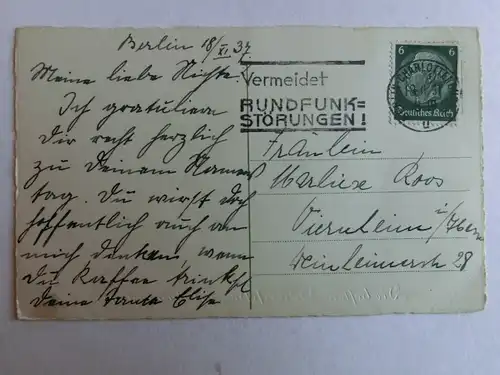 Berlin 18/XI. 37
Meine liebe Nichte.
Ich gratuliere
dir recht herzlich
zu Deinem Namens
tag. Du wirst doch
hoffentlich auch an
mich denken, wenn
du Kaffee trinkst
Deine Tante Elise
Vermeidet
RUNDFUNK=
STÖRUNGEN!
CHARLOTTENBURG
6 6
Deutsches Reich
Fräulein
Marliese Roos
Viernheim i/Hessen
Weinheimerstr 28